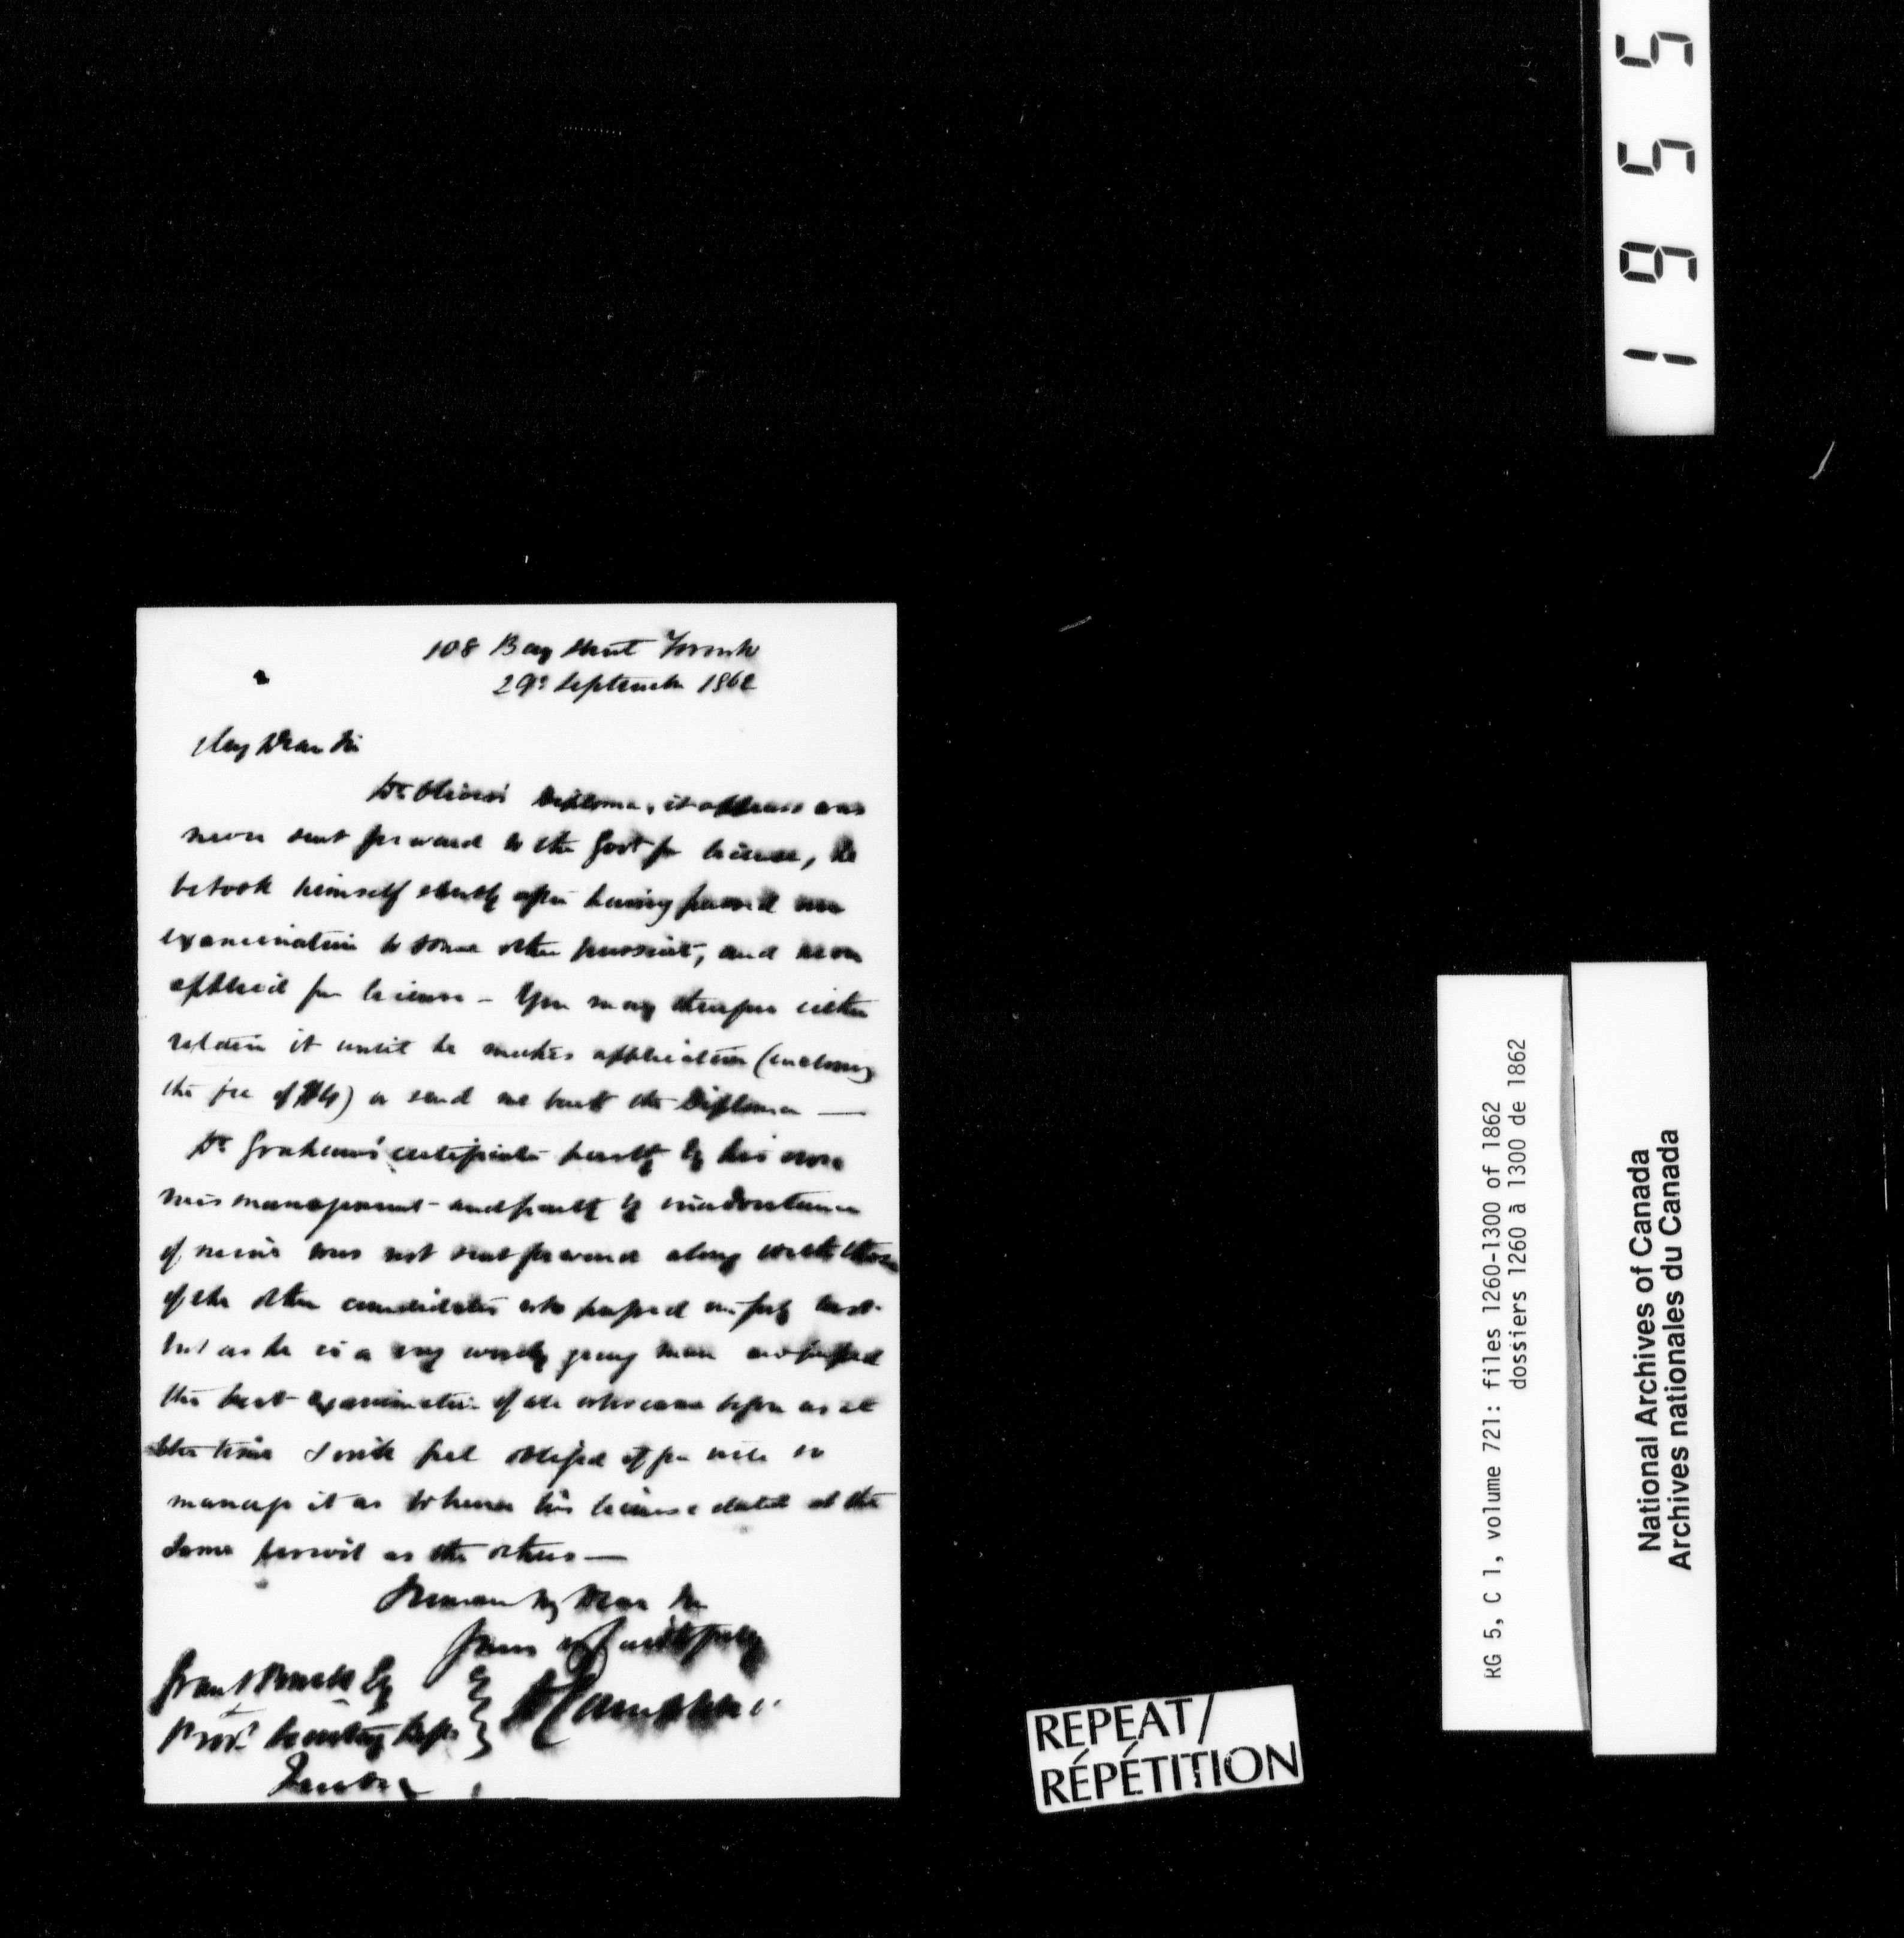 108 Bay Street Toronto
29th September 1862
My Dear Sir
Dr Diploma, it appears was
never sent forward to the Govt for license, he
betook himself shortly after having passed our
examination to some other pursuit, and never
applied for license - You may therefore either
retain it until he makes application (enclosing
the fee of $4) or send me back the Diploma —
Dr Graham's certificate partly by his own
mismanagement - and partly by inadvertance
of mine was not sent forward along with those
of the other candidates who passed in July last.
but as he is a very worthy young man and passed
the best examination of all who came before us at
the time I will feel obliged if you will so
manage it as to have his license dated at the
same period as the others —
Remain My Dear Sir
Yours faithfully
Grant Powell Esq
Provl Secretary Dept
Quebec
REPEAT/
RÉPÉTITION
1955
RG 5, C 1, volume 721: files 1260-1300 of 1862
dossiers 1260 à 1300 de 1862
National Archives of Canada
Archives nationales du Canada